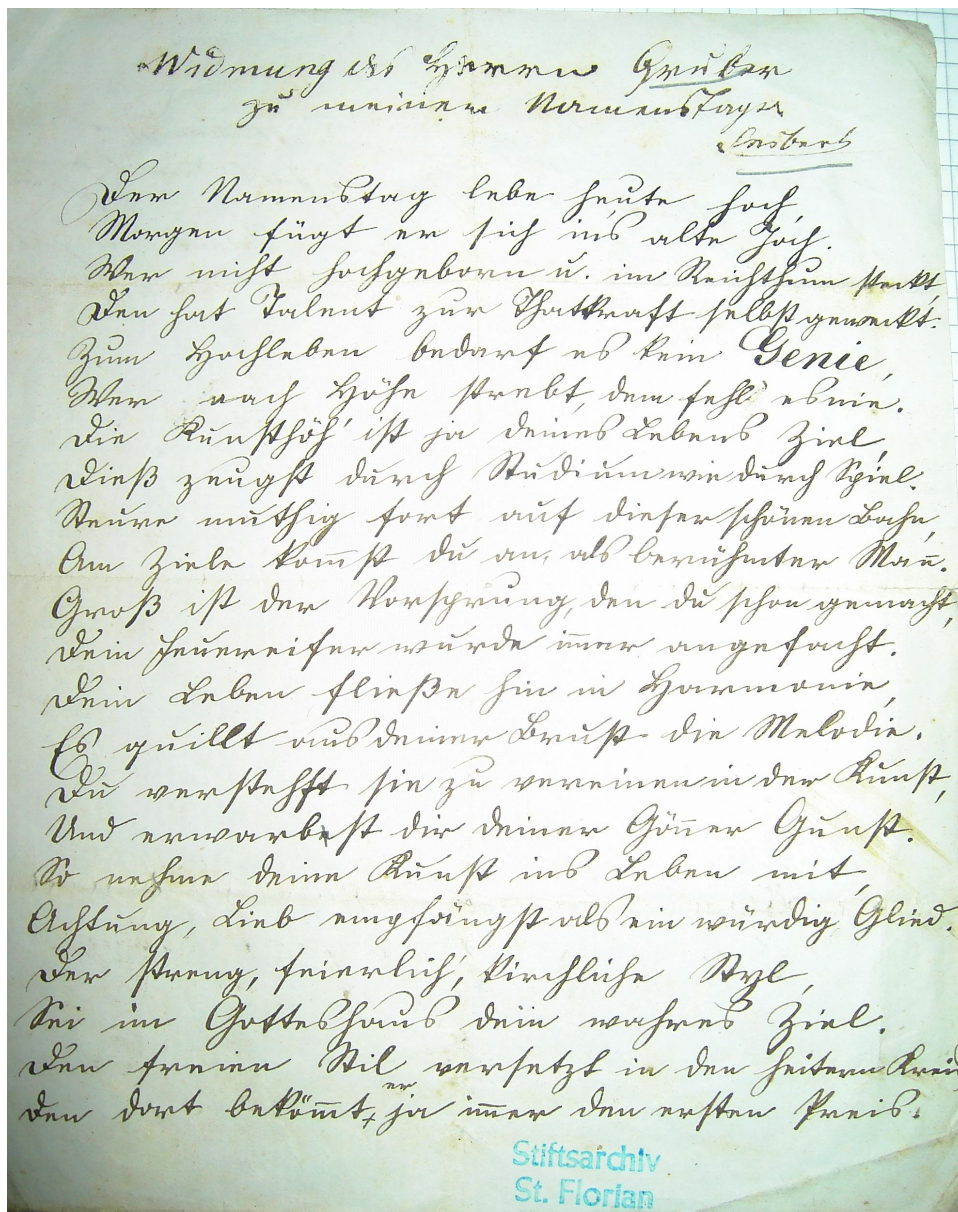 Widmung des Herrn Gruber
zu meinem Namenstage
Der Namenstag lebe heute hoch,
Morgen fügt er sich ins alte Joch.
Wer nicht hochgeborn u. im Reichthum steckt,
Den hat Talent zur Thatkraft selbst geweckt.
Zum Hochleben bedarf es kein Genie,
Wer nach Höhe strebt, dem fehl es nie.
Die Kunsthöh' ist ja deines Lebens Ziel,
Dieß zeugst durch Studium wie durch Spiel.
Steure muthig fort auf dieser schönen Bahn,
Am Ziele kom̄st du an, als berühmter Man̄.
Groß ist der Vorsprung, den du schon gemacht,
Dein Feuereifer wurde im̄er angefacht.
Dein Leben fließe hin in Harmonie,
Es quillt aus deiner Brust die Melodie.
Du verstehst sie zu vereinen in der Kunst,
Und erwarbest dir deiner Gön̄er Gunst.
So nehme deine Kunst ins Leben mit,
Achtung, Lieb empfängst als ein würdig Glied.
Der streng, feierlich', kirchliche Styl,
Sei im Gotteshaus dein wahres Ziel.
Den freien Stil versetzt in den heitern Kreis
Den dort beköm̄t er ja im̄er den ersten Preis.
Stiftsarchiv
St. Florian